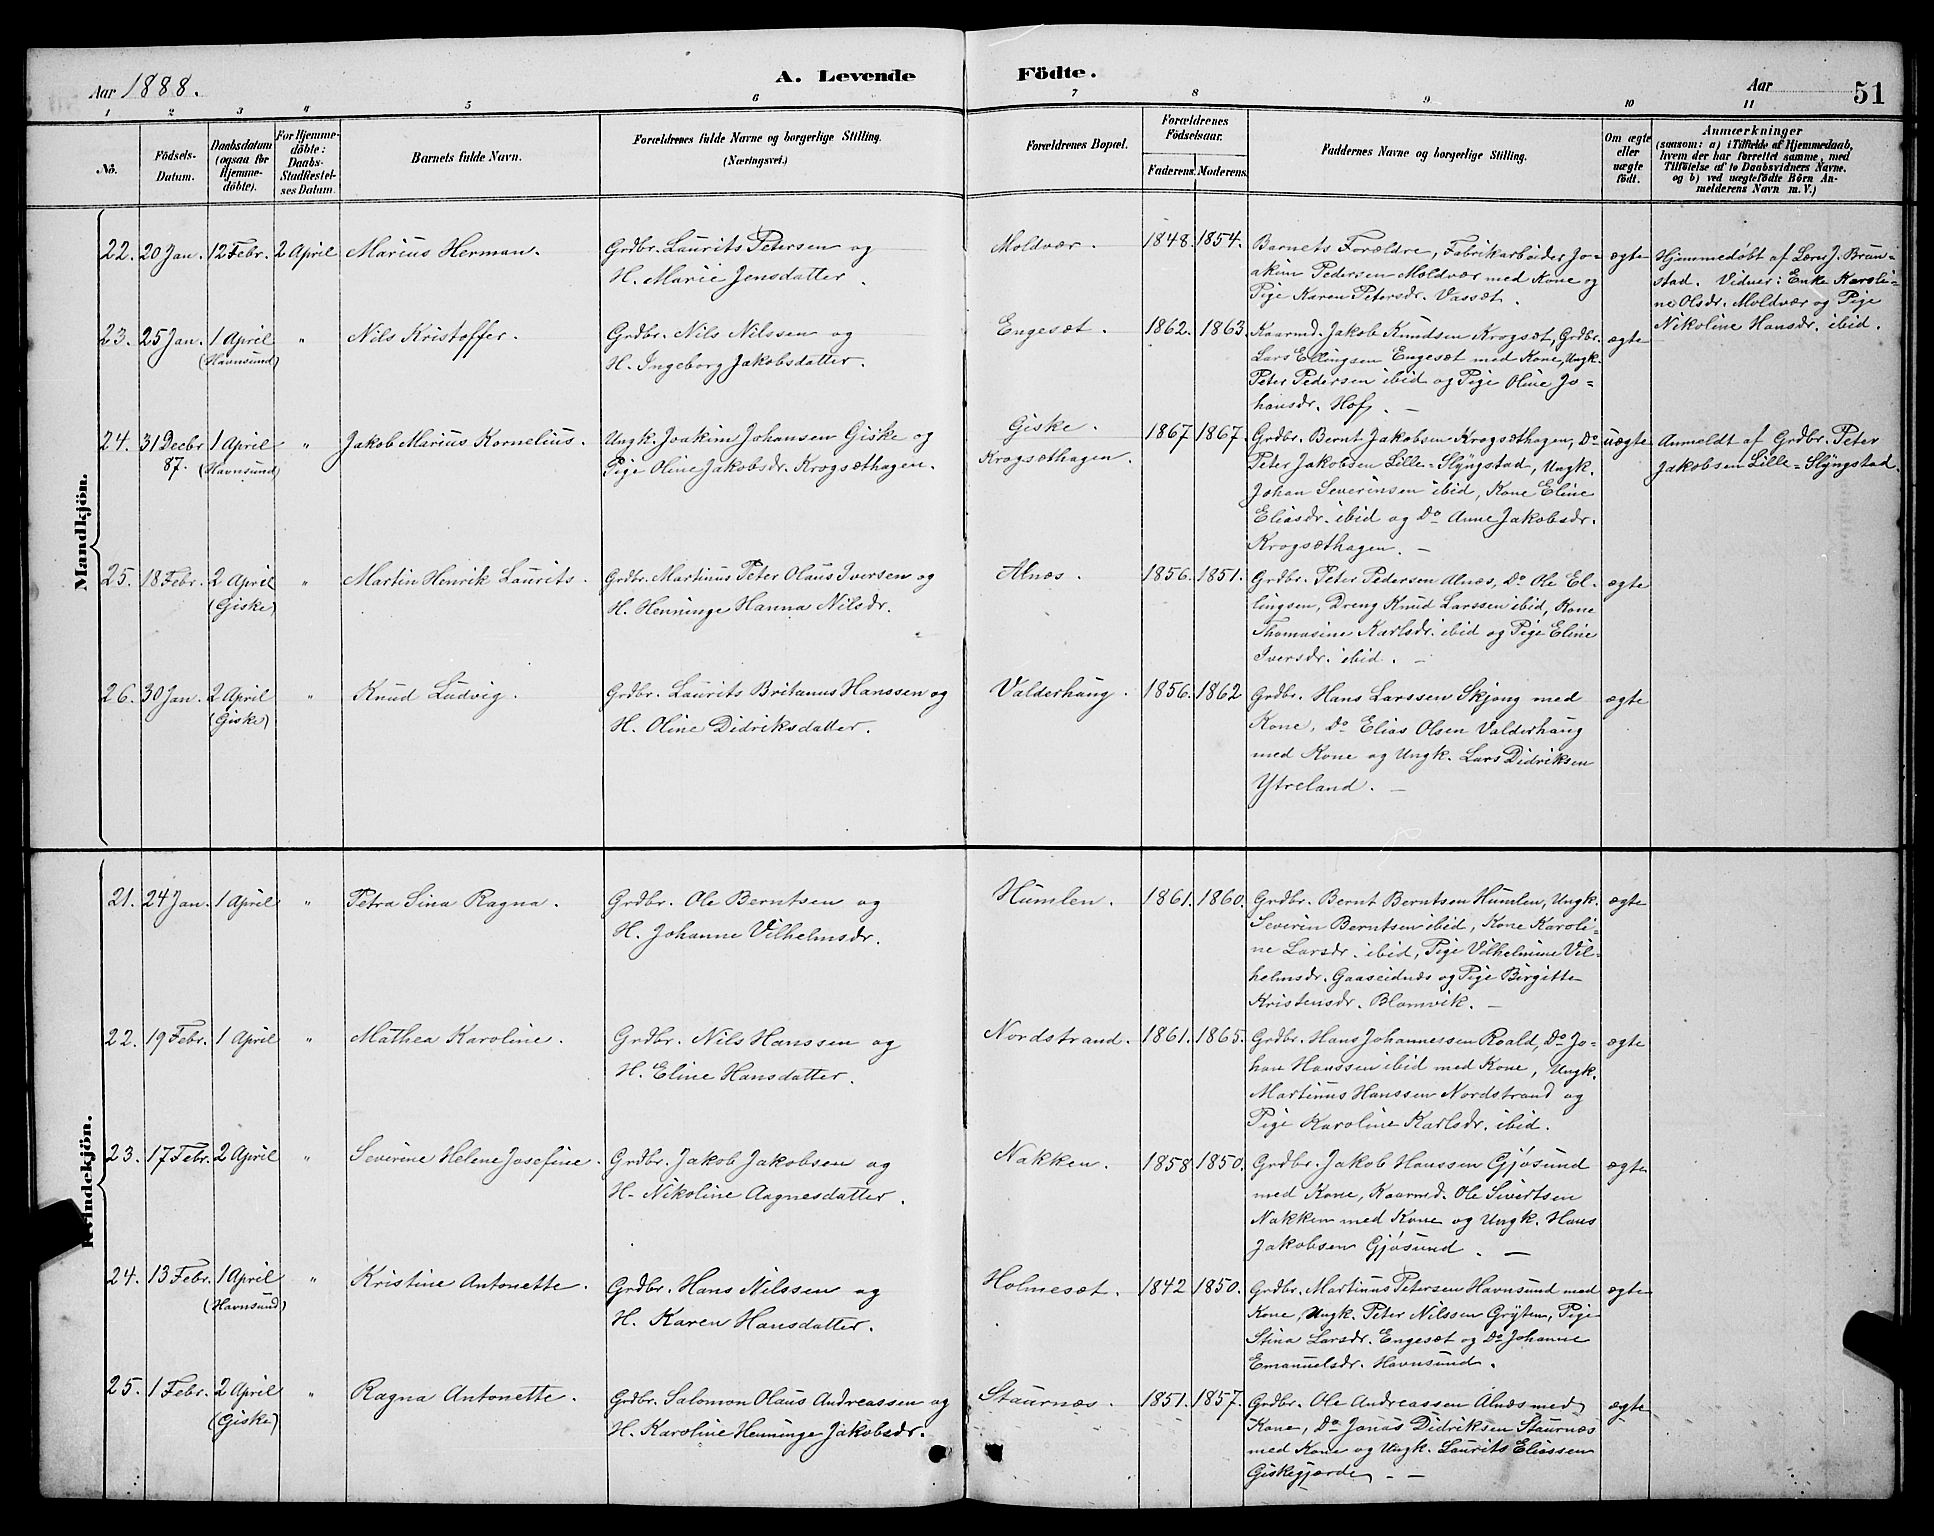 Aar 1888.
A. Levende Födte.
Aar
51
1 2 3 4 5 6 7 8 9 10 11
No.
Födsels-
Datum.
Daabsdatum
(ogsaa for
Hjemme-
döbte).
For Hjemme-
döbte:
Daabs-
Stadfæstel-
ses Datum.
Barnets fulde Navn.
Forældrenes fulde Navne og borgerlige Stilling.
(Næringsvei.)
Forældrenes Bopæl.
Forældrenes
Födselsaar.
Faderens. Moderens.
Faddernes Navne og borgerlige Stilling.
Om ægte
eller
uægte
födt.
Anmærkninger
(saasom: a) i Tilfælde af Hjemmedaab,
hvem der har forrettet samme, med
Tilföielse af to Daabsvidners Navne.
og b) ved uægtefödte Börn An-
melderens Navn m. V.)
Mandkjön.
22. 20 Jan. 12 Febr. 2 April Marius Herman.
Grdbr. Laurits Petersen og
H. Marie Jensdatter.
Moldvær. 1848. 1854.
Barnets Forældre, Fabrikarbeider Jo-
akim Pedersen Moldvær med Kone og
Pige Karen Petersdr. Vassæt.
ægte
Hjemmedøbt af Lærer J. Brun-
stad. Vidner: Enke Karoli-
ne Olsdr. Moldvær og Pige
Nikoline Hansdr. ibid.
23. 25 Jan. 1 April
(Havnsund)
" Nils Kristoffer.
Grdbr. Nils Nilssen og
H. Ingeborg Jakobsdatter.
Engesæt. 1862. 1863.
Kaarmd. Jakob Knudsen Krogsæt, Grdbr.
Lars Ellingsen Engesæt med Kone, Ungk.
Peter Pedersen ibid og Pige Oline Jo-
hansdr. Hof. —
ægte
24. 31 Decbr
87.
1 April
(Havnsund)
" Jakob Marius Kornelius.
Ungk. Joakim Johansen Giske og
Pige Oline Jakobsdr. Krogsæthagen.
Giske.
Krogsæthagen.
1867 1867.
Grdbr. Bernt Jakobsen Krogsæthagen, Do
Peter Jakobsen Lille-Slyngstad, Ungk.
Johan Severinsen ibid, Kone Eline
Eliasdr. ibid og Do Anne Jakobsdr.
Krogsæthagen. —
uægte
Anmeldt af Grdbr. Peter
Jakobsen Lille-Slyngstad.
25. 18 Febr. 2 April
(Giske)
" Martin Henrik Laurits.
Grdbr. Martinus Peter Olaus Iversen og
H. Henninge Hanna Nilsdr.
Alnæs. 1856. 1851.
Grdbr. Peter Pedersen Alnæs, Do Ole El-
lingsen, Dreng Knud Larssen ibid, Kone
Thomasine Karlsdr. ibid og Pige Eline
Iversdr. ibid. —
ægte
26. 30 Jan. 2 April
(Giske)
" Knud Ludvig.
Grdbr. Laurits Britanus Hanssen og
H. Oline Didriksdatter.
Valderhaug. 1856. 1862
Grdbr. Hans Larssen Skjong med
Kone, Do Elias Olsen Valderhaug
med Kone og Ungk. Lars Didriksen
Ytreland. —
ægte
Kvindekjön.
21. 24 Jan. 1 April " Petra Sina Ragna.
Grdbr. Ole Berntsen og
H. Johanne Vilhelmsdr.
Humlen. 1861. 1860.
Grdbr. Bernt Berntsen Humlen, Ungk.
Severin Berntsen ibid, Kone Karoli-
ne Larsdr. ibid, Pige Vilhelmine Vil-
helmsdr. Gaaseidnæs og Pige Birgitte
Kristensdr. Blomvik. —
ægte
22. 19 Febr. 1 April " Mathea Karoline.
Grdbr. Nils Hanssen og
H. Eline Hansdatter.
Nordstrand. 1861. 1865.
Grdbr. Hans Johannessen Roald, Do Jo-
han Hanssen ibid med Kone, Ungk.
Martinus Hanssen Nordstrand og
Pige Karoline Karlsdr. ibid.
ægte
23. 17 Febr. 2 April " Severine Helene Josefine.
Grdbr. Jakob Jakobsen og
H. Nikoline Aagnesdatter.
Nakken. 1858 1850.
Grdbr. Jakob Hanssen Gjøsund
med Kone, Kaarmd. Ole Sivertsen
Nakken med Kone og Ungk. Hans
Jakobsen Gjøsund. —
ægte
24. 13 Febr. 1 April
(Havnsund)
" Kristine Antonette.
Grdbr. Hans Nilssen og
H. Karen Hansdatter.
Holmesæt. 1842 1850.
Grdbr. Martinus Petersen Havnsund med
Kone, Ungk. Peter Nilssen Gryten, Pige
Stina Larsdr. Engesæt og Do Johanne
Emanuelsdr. Havnsund.
ægte
25. 1 Febr. 2 April
(Giske)
" Ragna Antonette.
Grdbr. Salomon Olaus Andreassen og
H. Karoline Henninge Jakobsdr.
Staurnæs. 1851. 1857.
Grdbr. Ole Andreassen Alnæs med
Kone, Do Jonas Didriksen Staurnæs
med Kone og Ungk. Laurits Eliassen
Giskegjærde. —
ægte